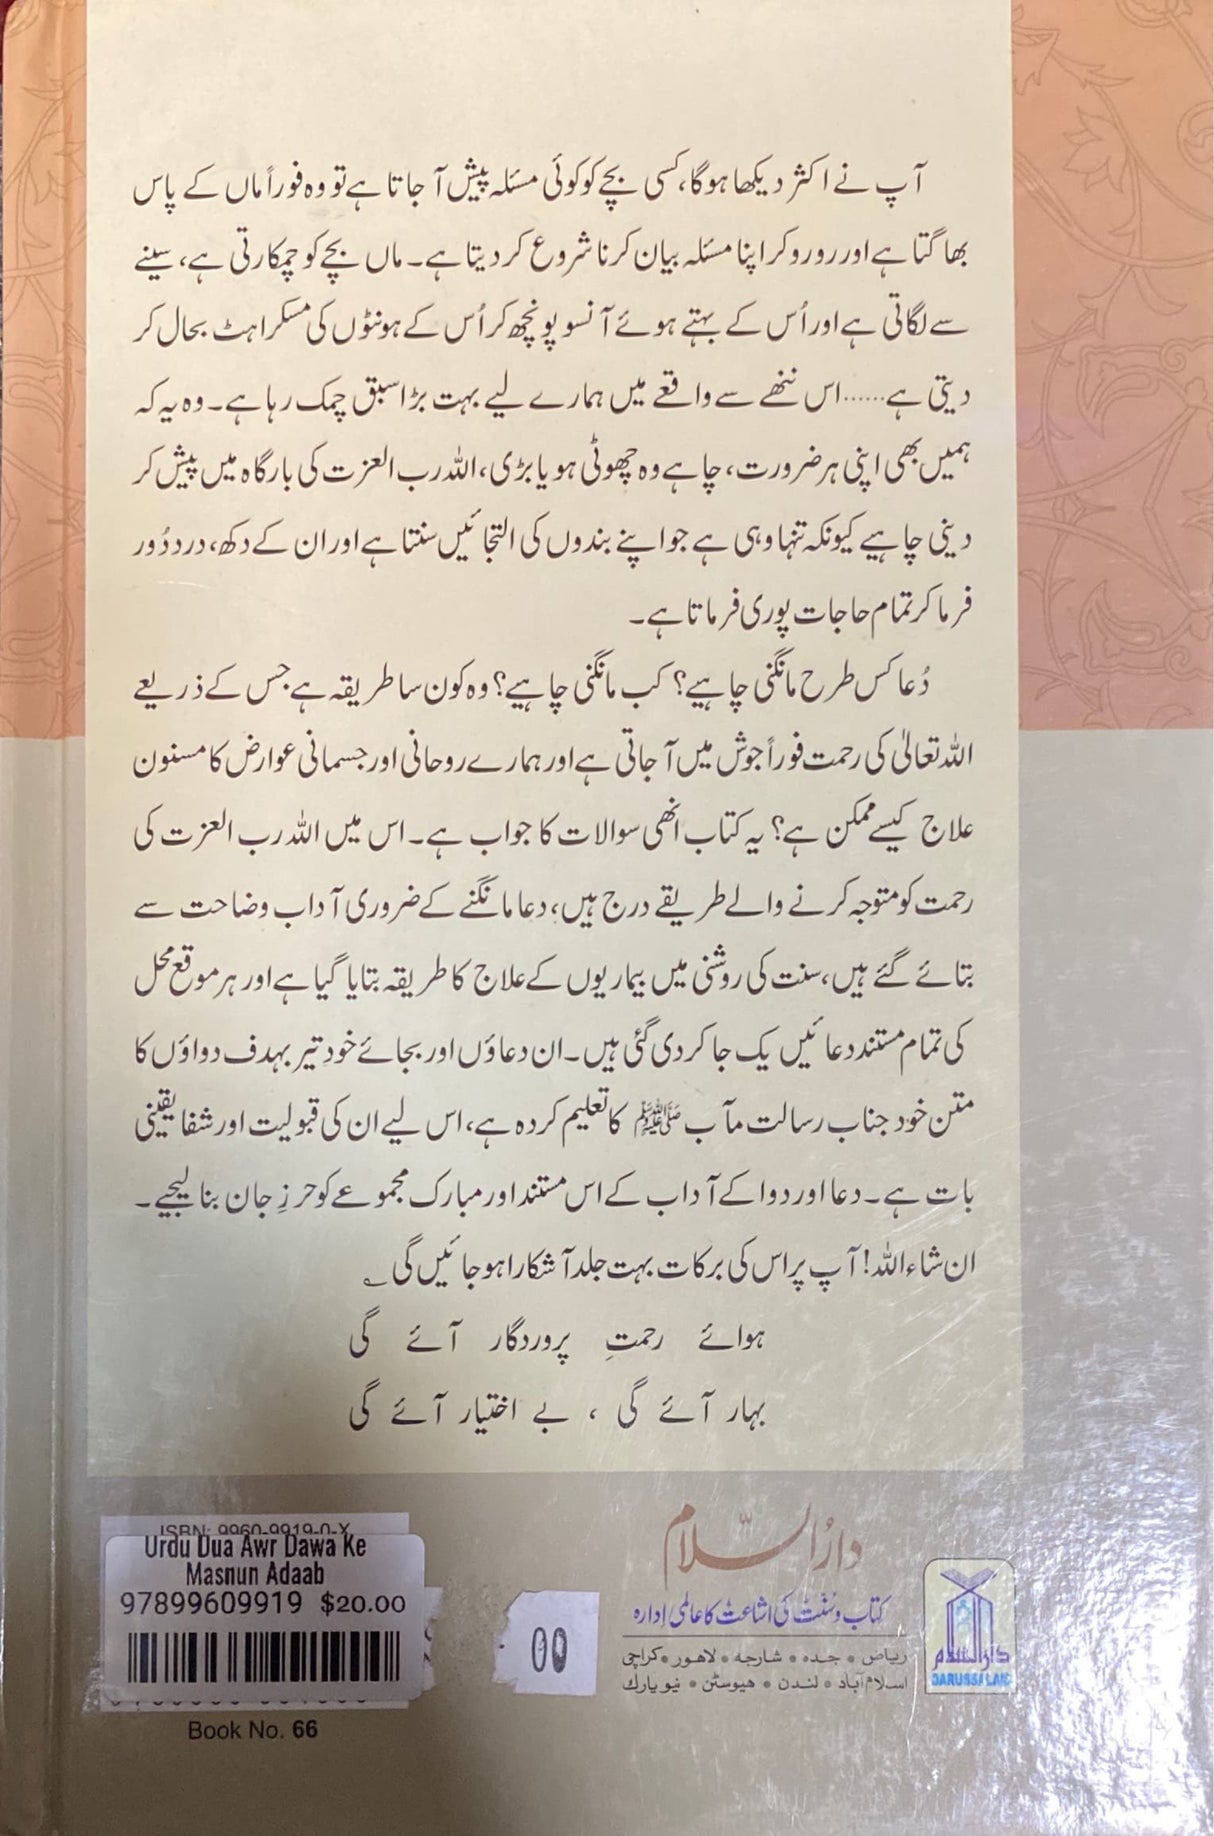 آپ نے اکثر دیکھا ہوگا، کسی بچے کو کوئی مسئلہ پیش آ جاتا ہے تو وہ فوراً ماں کے پاس
بھاگتا ہے اور رو رو کر اپنا مسئلہ بیان کرنا شروع کر دیتا ہے۔ ماں بچے کو چمکارتی ہے، سینے
سے لگاتی ہے اور اُس کے بہتے ہوئے آنسو پونچھ کر اُس کے ہونٹوں کی مسکراہٹ بحال کر
دیتی ہے...... اس ننھے سے واقعے میں ہمارے لیے بہت بڑا سبق چمک رہا ہے۔ وہ یہ کہ
ہمیں بھی اپنی ہر ضرورت، چاہے وہ چھوٹی ہو یا بڑی، اللہ رب العزت کی بارگاہ میں پیش کر
دینی چاہیے کیونکہ تنہا وہی ہے جو اپنے بندوں کی التجائیں سنتا ہے اور ان کے دکھ، درد دُور
فرما کر تمام حاجات پوری فرماتا ہے۔
دُعا کس طرح مانگنی چاہیے؟ کب مانگنی چاہیے؟ وہ کون سا طریقہ ہے جس کے ذریعے
اللہ تعالیٰ کی رحمت فوراً جوش میں آ جاتی ہے اور ہمارے روحانی اور جسمانی عوارض کا مسنون
علاج کیسے ممکن ہے؟ یہ کتاب انھی سوالات کا جواب ہے۔ اس میں اللہ رب العزت کی
رحمت کو متوجہ کرنے والے طریقے درج ہیں، دعا مانگنے کے ضروری آداب وضاحت سے
بتائے گئے ہیں، سنت کی روشنی میں بیماریوں کے علاج کا طریقہ بتایا گیا ہے اور ہر موقع محل
کی تمام مستند دعائیں یک جا کر دی گئی ہیں۔ ان دعاؤں اور بجائے خود تیر بہدف دواؤں کا
متن خود جناب رسالت مآب ﷺ کا تعلیم کردہ ہے، اس لیے ان کی قبولیت اور شفا یقینی
بات ہے۔ دعا اور دوا کے آداب کے اس مستند اور مبارک مجموعے کو حرزِ جان بنا لیجیے۔
ان شاء اللہ! آپ پر اس کی برکات بہت جلد آشکارا ہو جائیں گی ؎
ہوائے رحمتِ پروردگار آئے گی
بہار آئے گی ، بے اختیار آئے گی
دارُالسّلام
کتاب و سنت کی اشاعت کا عالمی ادارہ
ریاض • جدہ • شارجہ • لاھور • کراچی
اسلام آباد • لندن • ھیوسٹن • نیو یارک
دارالسلام
DARUSSALAM
ISBN: 9960-9919-0-X
Urdu Dua Awr Dawa Ke
Masnun Adaab
97899609919 $20.00
00
Book No. 66